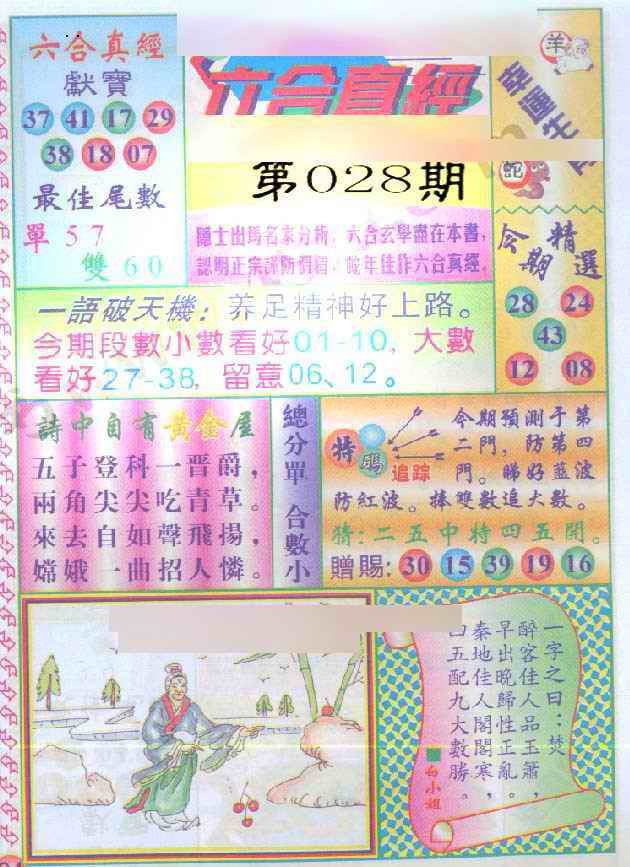 六合真經
獻寶
37 41 17 29
38 18 07
最佳尾數
單 5 7
雙 6 0
六合真經
第028期
隱士出馬名家分析，六合玄學盡在本書，
認明正宗謹防假冒，蛇年佳作六合真經。
羊
幸運生
蛇
今期精選
28 24
43
12 08
一語破天機：养足精神好上路。
今期段數小數看好01-10，大數
看好27-38，留意06、12。
詩中自有黃金屋
五子登科一晋爵，
兩角尖尖吃青草。
來去自如聲飛揚，
嫦娥一曲招人憐。
總分單 合數小
特碼
追踪
今期預測于第
二門，防第四
門。睇好藍波
防紅波。捧雙數追大數。
猜：二五中特四五開。
贈賜：30 15 39 19 16
一字之曰：焚
醉容佳人品玉簫，
早出晚歸性正亂。
秦地佳人閣閣寒，
四五配九大數勝。
白小姐